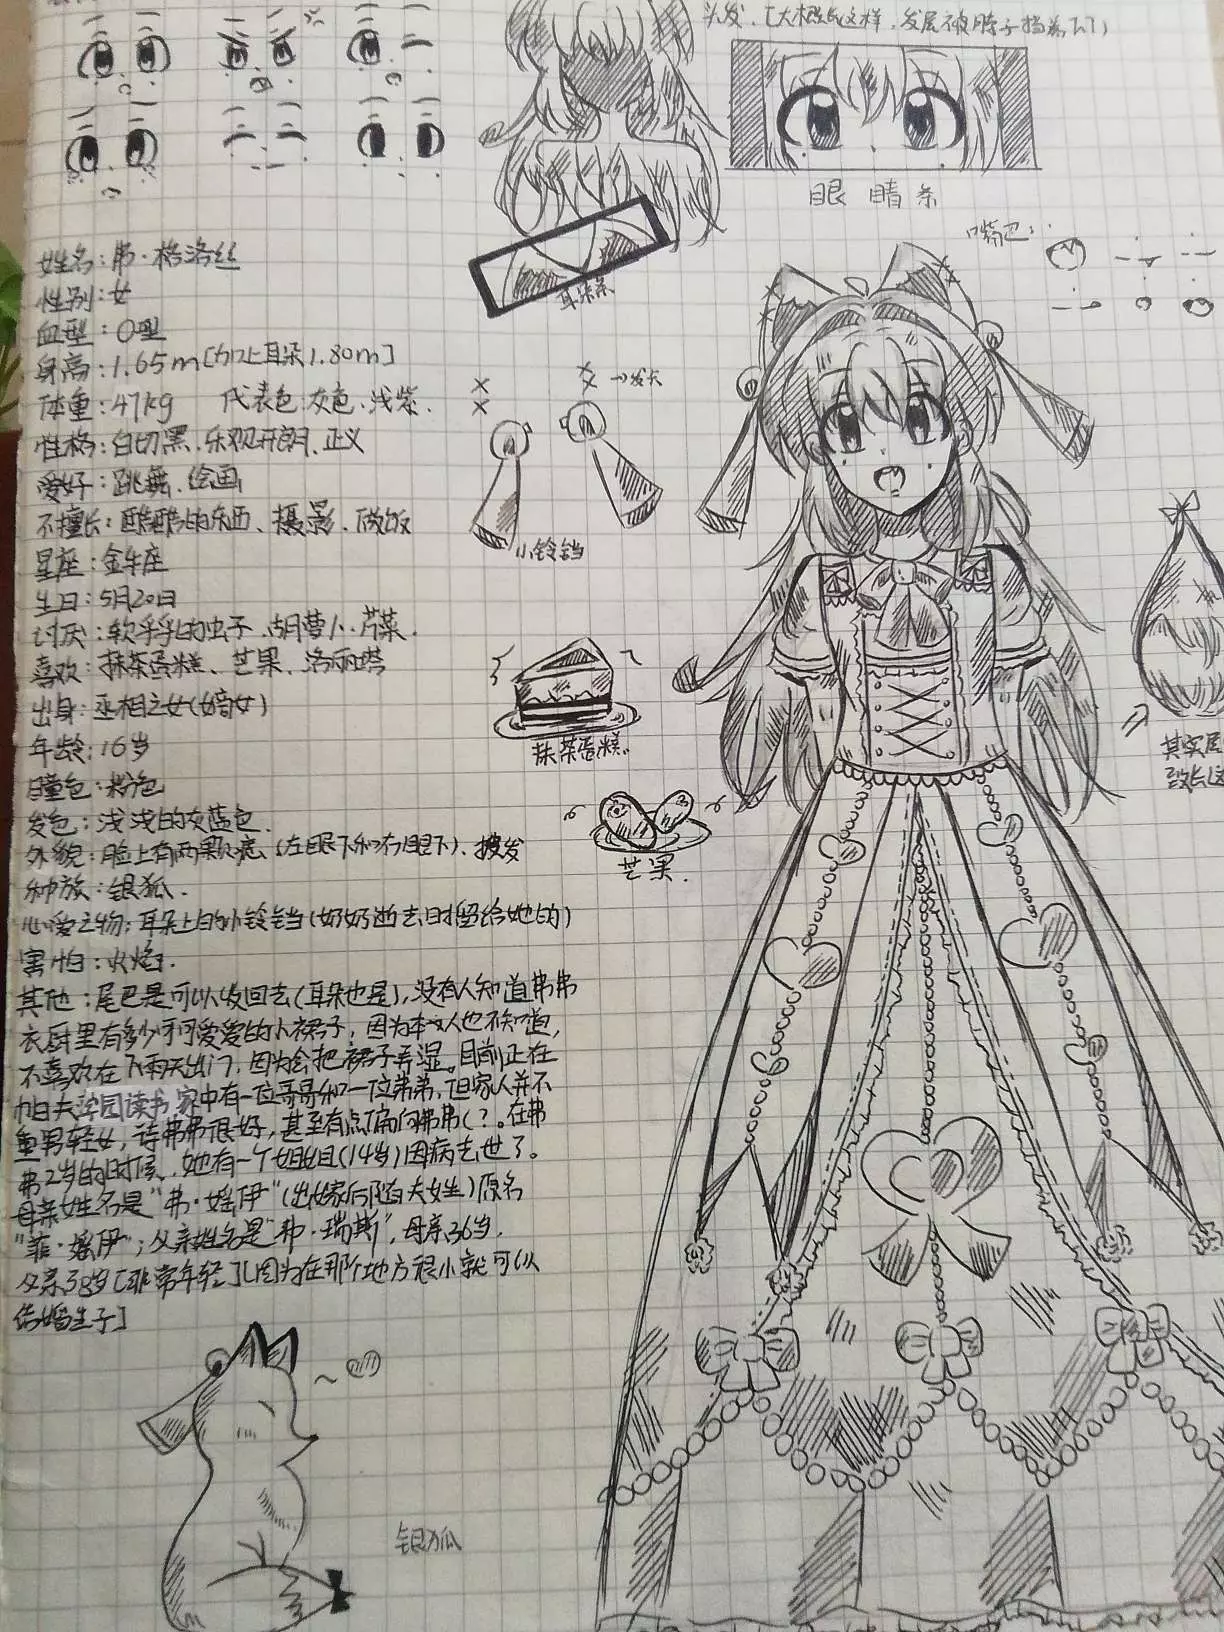 头发.[大概是这样,发尾被脖子挡着了]
眼睛条
嘴巴:
耳朵条
→发卡
小铃铛
抹茶蛋糕.
芒果.
其实尾
银狐
姓名:弗·格洛丝
性别:女
血型:O型
身高:1.65m[加上耳朵1.80m]
体重:47kg 代表色:灰色.浅紫.
性格:白切黑.乐观开朗.正义
爱好:跳舞.绘画
不擅长:酷酷的东西、摄影.做饭
星座:金牛座
生日:5月20日
讨厌:软乎乎的虫子.胡萝卜.芹菜.
喜欢:抹茶蛋糕、芒果、洛丽塔
出身:巫相之女(嫡女)
年龄:16岁
瞳色:粉色
发色:浅浅的灰蓝色.
外貌:脸上有两颗痣.(左眼下和右眼下).披发
种族:银狐.
心爱之物:耳朵上的小铃铛(奶奶逝去时留给她的)
害怕:火焰.
其他:尾巴是可以收回去(耳朵也是),没有人知道弗弗
衣厨里有多少可可爱爱的小裙子,因为本人也不知道,
不喜欢在下雨天出门,因为会把裙子弄湿。目前正在
帕日夫学园读书.家中有一位哥哥和一位弟弟,但家人并不
重男轻女,待弗弗很好,甚至有点偏向弗弗(?。在弗
弗2岁的时候、她有一个姐姐(14岁)因病去世了。
母亲姓名是"弗·媱伊"(出嫁后随夫姓)原名
"菲·媱伊";父亲姓名是"弗·瑞斯",母亲36岁.
父亲38岁[非常年轻][因为在那个地方很小就可以
结婚生子]